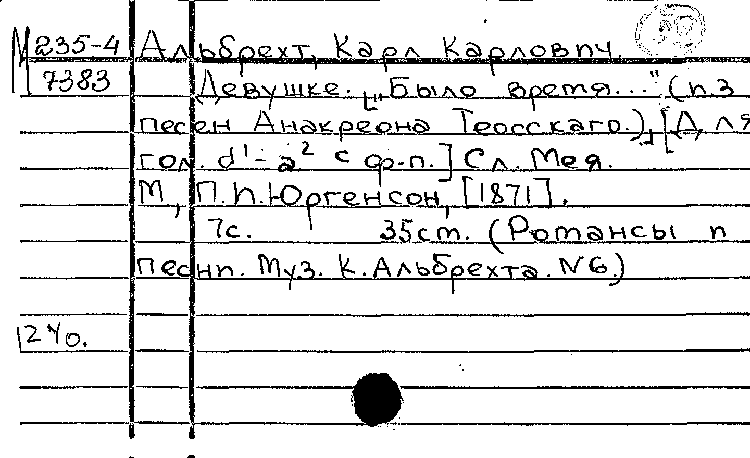 М 235-4 Альбрехт, Карл Карлович.
7383 Девушке. ["Было время..." (из
песен Анакреона Теосскаго.)], [Для
гол. d¹-a² с ф-п.] Сл. Мея.
М, П.И.Юргенсон, [1871].
7с. 35cm. (Романсы и
песни. Муз. К.Альбрехта. №6.)